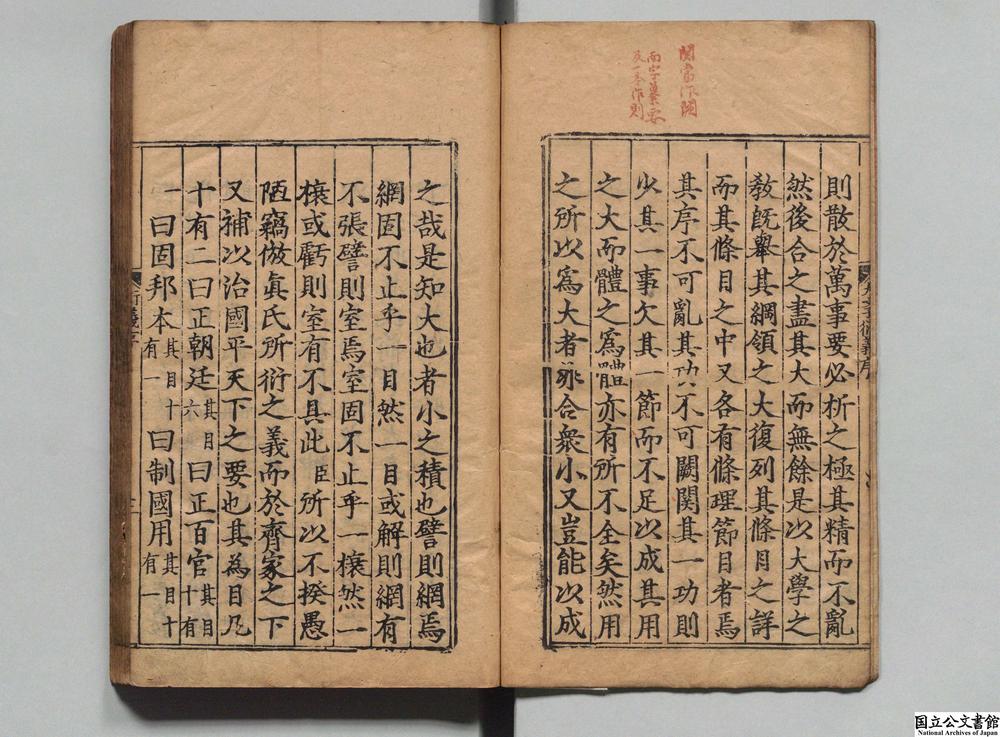 闕當作闕
而字纂要
及一本作則
則散於萬事要必析之極其精而不亂
然後合之盡其大而無餘是以大學之
敎旣舉其綱領之大復列其條目之詳
而其條目之中又各有條理節目者焉
其序不可亂其功不可闕闕其一功則
少其一事欠其一節而不足以成其用
之大而體之爲體亦有所不全矣然用
之所以爲大者非合衆小又豈能以成
之哉是知大也者小之積也譬則網焉
網固不止乎一目然一目或解則網有
不張譬則室焉室固不止乎一榱然一
榱或虧則室有不具此臣所以不揆愚
陋竊倣眞氏所衍之義而於齊家之下
又補以治國平天下之要也其為目凡
十有二曰正朝廷其目六曰正百官其目十有
一曰固邦本其目十有一曰制國用其目十有一
大學衍義序
衍義序
国立公文書館
National Archives of Japan